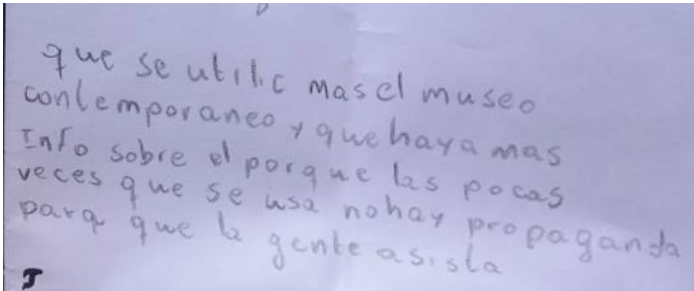 que se utilic mas el museo
contemporaneo y que haya mas
Info sobre el porque las pocas
veces que se usa no hay propaganda
para que la gente asista
J